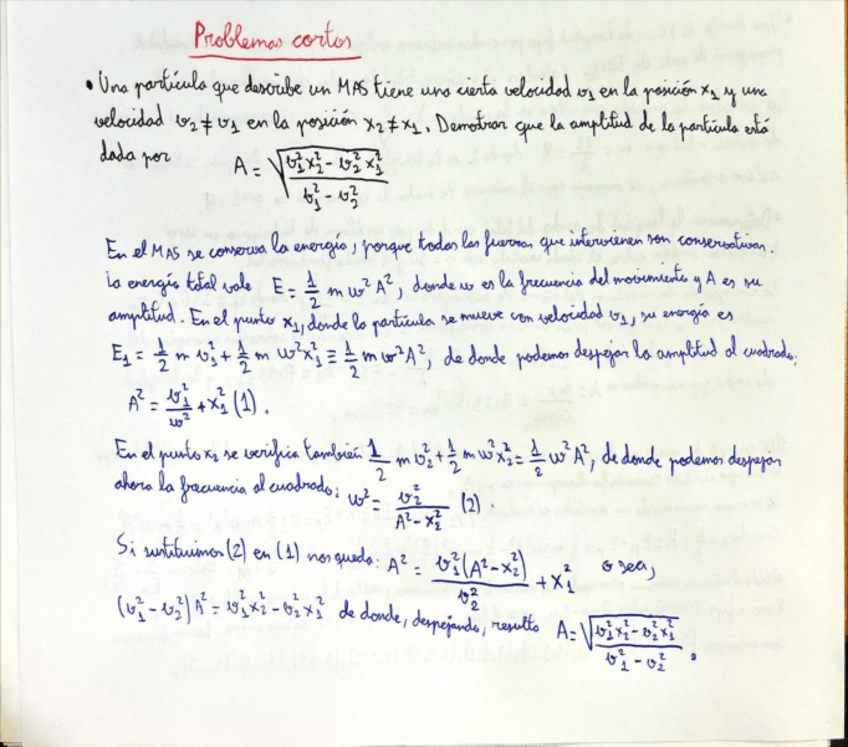 Problemas cortos
• Una partícula que describe un MAS tiene una cierta velocidad v₁ en la posición x₁ y una
velocidad v₂ ≠ v₁ en la posición x₂ ≠ x₁. Demostrar que la amplitud de la partícula está
dada por A = √((v₁²x₂² - v₂²x₁²)/(v₁² - v₂²))
En el MAS se conserva la energía, porque todas las fuerzas que intervienen son conservativas.
La energía total vale E = 1/2 m w² A², donde w es la frecuencia del movimiento y A es su
amplitud. En el punto x₁, donde la partícula se mueve con velocidad v₁, su energía es
E₁ = 1/2 m v₁² + 1/2 m w² x₁² ≡ 1/2 m w² A², de donde podemos despejar la amplitud al cuadrado:
A² = v₁²/w² + x₁² (1).
En el punto x₂ se verifica también 1/2 m v₂² + 1/2 m w² x₂² = 1/2 w² A², de donde podemos despejar
ahora la frecuencia al cuadrado: w² = v₂²/(A² - x₂²) (2).
Si sustituimos (2) en (1) nos queda: A² = v₁²(A² - x₂²)/v₂² + x₁² o sea,
(v₁² - v₂²)A² = v₁²x₂² - v₂²x₁² de donde, despejando, resulta A = √((v₁²x₂² - v₂²x₁²)/(v₁² - v₂²)).